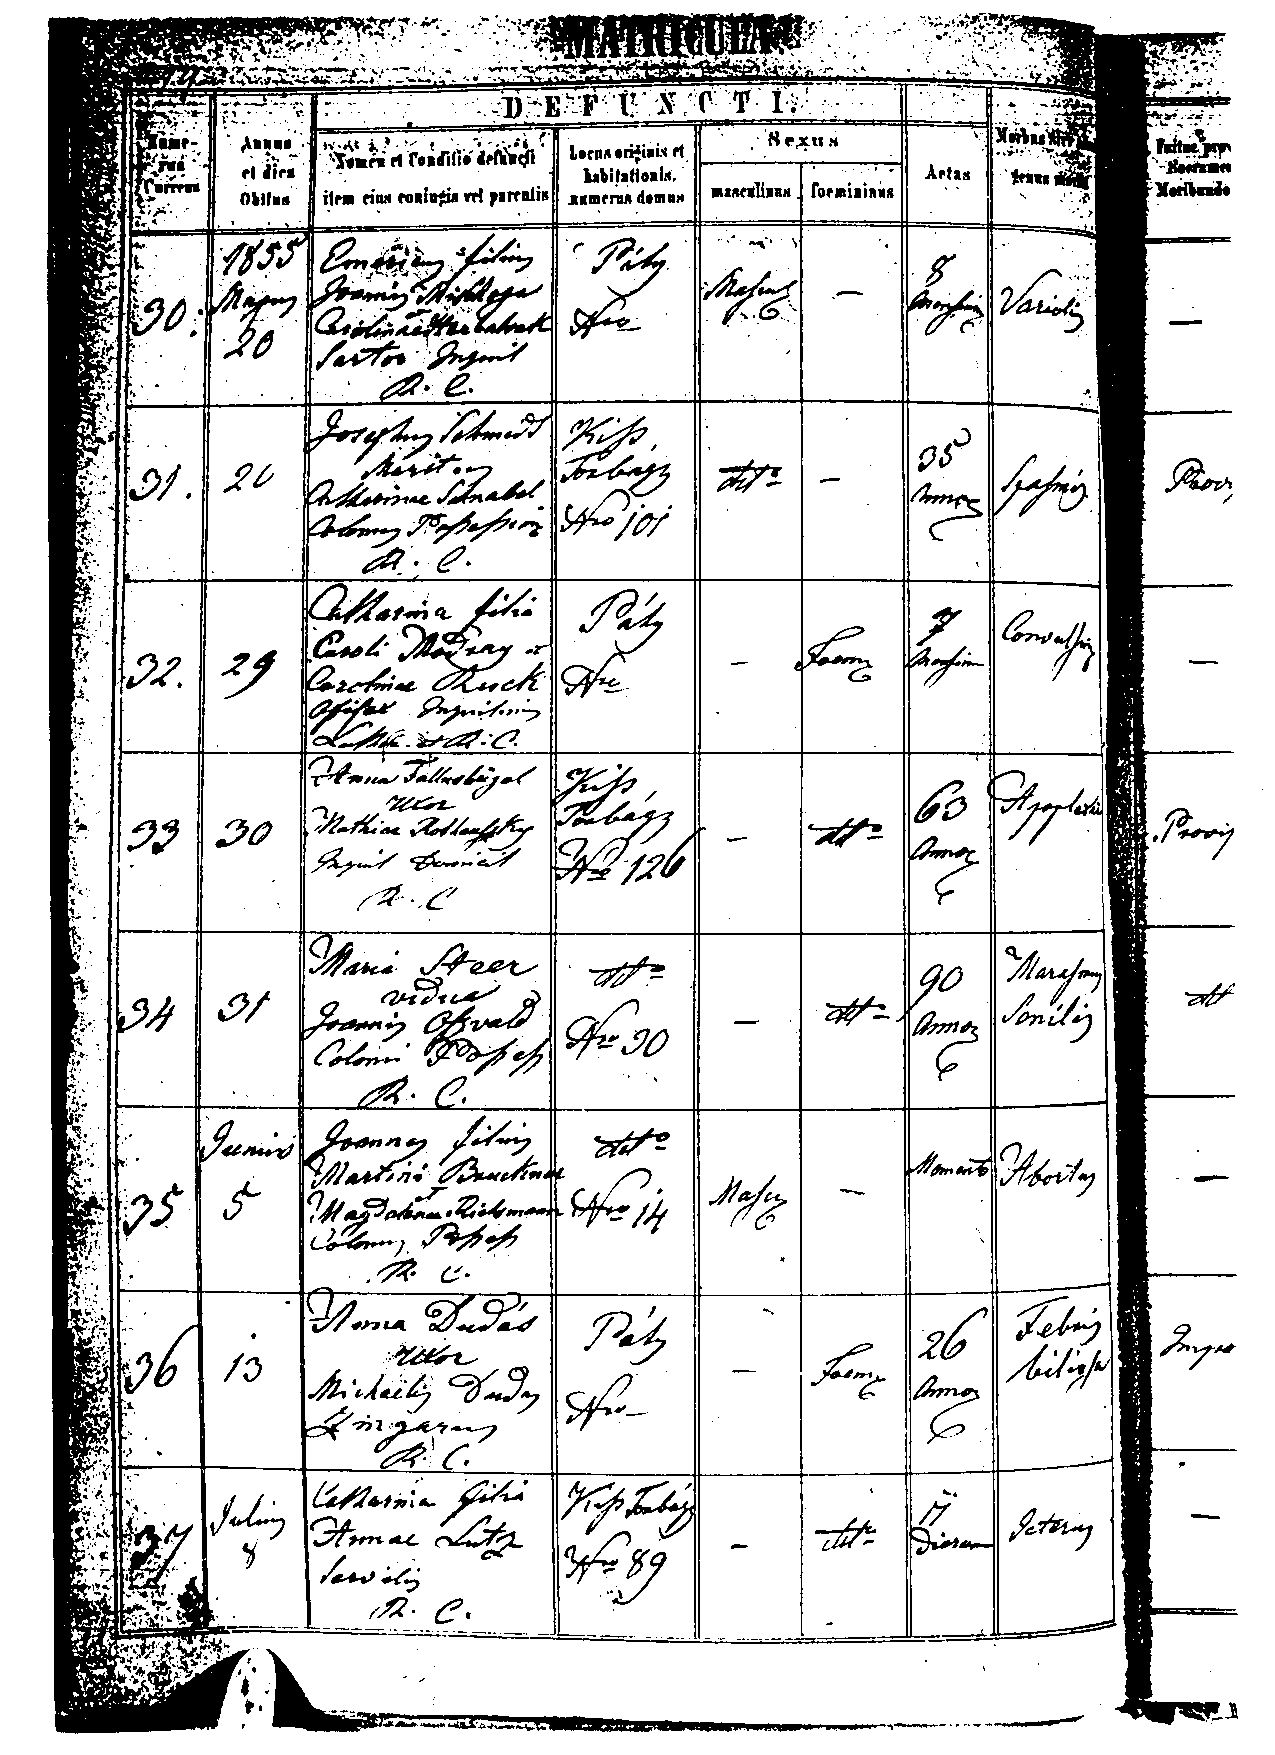 MATRICULA
DEFUNCTI.
Numerus Currens
Annus et dies Obitus
Nomen et Conditio defuncti
item eius coniugis vel parentis
Locus originis et habitationis, numerus domus
Sexus
masculinus
foemininus
Aetas
Morbus
30.
1855
20
filius
Joannis
Sartor Inquil
R. C.
Páty
Nro
Mascul
—
8
Mensium
Variolis
—
31.
Josephus Schmidt
Maritus
Catharinae Schnabel
Colonus Possessionis
R. C.
Kiss
Torbágy
Nro 101
detto
—
35
Annor
Spasmus
Provis
32.
29
Catharina filia
Caroli Modray et
Carolinae Ruck
Inquilinus
Luth. et R. C.
Páty
Nro
—
Foem
7
Mensium
Convulsis
—
33
30
Anna Fallusbügel
Uxor
Mathiae
Inquil
R. C
Kiss,
Torbágy
Nro 126
—
detto
63
Annor
Apoplexia
Provis
34
31
Maria Steer
vidua
Joannis Osvald
Coloni Possess
R. C.
detto
Nro 30
—
detto
90
Annor
Marasmus
Senilis
dtt
35
Junius
5
Joannes filius
Martini Bruckner
et
Magdalenae Richmann
Colonus Possess
R. C.
detto
Nro 14
Mascu
—
Momento
Abortus
—
36
13
Anna Dudás
Uxor
Michaelis Dudas
Zingarus
R. C.
Páty
Nro —
—
Foem
26
Annor
Febris
biliosa
Impro
37
Julius
8
Catharina filia
Annae Lutz
Servilis
R. C.
Kiss Torbágy
Nro 89
—
detto
17
Dierum
Icterus
—